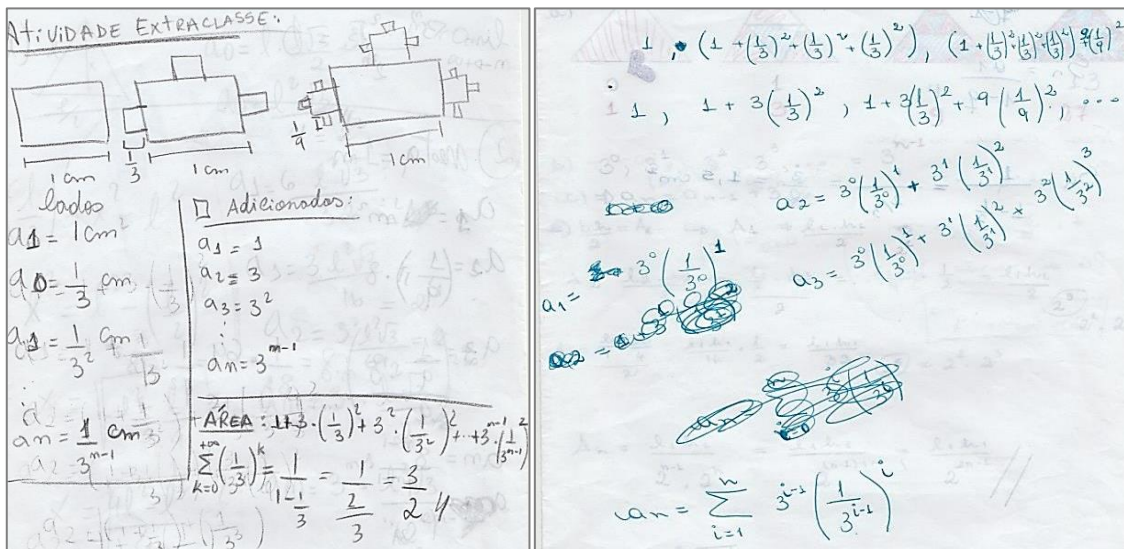 ATIVIDADE EXTRACLASSE:
1/9
1/3
1 cm
1 cm
1 cm
lados
a1 = 1 cm²
a0 = 1/3 cm
a1 = 1/3² cm
⋮
an = 1/3^(n-1) cm
□ Adicionados:
a1 = 1
a2 = 3
a3 = 3²
⋮
an = 3^(n-1)
ÁREA: 1+3·(1/3)²+3²·(1/3²)²+...+3^(n-1)·(1/3^(n-1))²
∑_(k=0)^(+∞) (1/3)^k = 1/(1-1/3) = 1/(2/3) = 3/2 //
1, (1+(1/3)²+(1/3)²+(1/3)²), (1+(1/3)²+(1/3)²+(1/3)²)+(1/9)²
1, 1+3(1/3)², 1+3(1/3)²+9·(1/9)², ...
a2 = 3⁰(1/3⁰)¹ + 3¹(1/3¹)²
a1 = 3⁰(1/3⁰)¹
a3 = 3⁰(1/3⁰)¹ + 3¹(1/3¹)² + 3²(1/3²)³
an = ∑_(i=1)^n 3^(i-1) (1/3^(i-1))^i